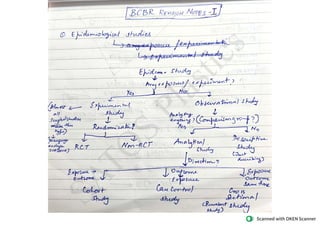 BCBR Revision Notes - I
① Epidemiological studies
↳ any exposure/experimental
↳ experimental study
Epidem. Study
Any exposure/experiment?
Yes No
Experimental Study
Observational Study
Randomized?
(Comparison group?)
Yes No
RCT Non-RCT
Analytical Study
Descriptive Study
(Just describing)
Direction?
Exposure → outcome
Outcome → Exposure
Exposure Outcome Same time
Cohort Study
Case Control Study
Cross Sectional Study
(Prevalent study)
Scanned with OKEN Scanner